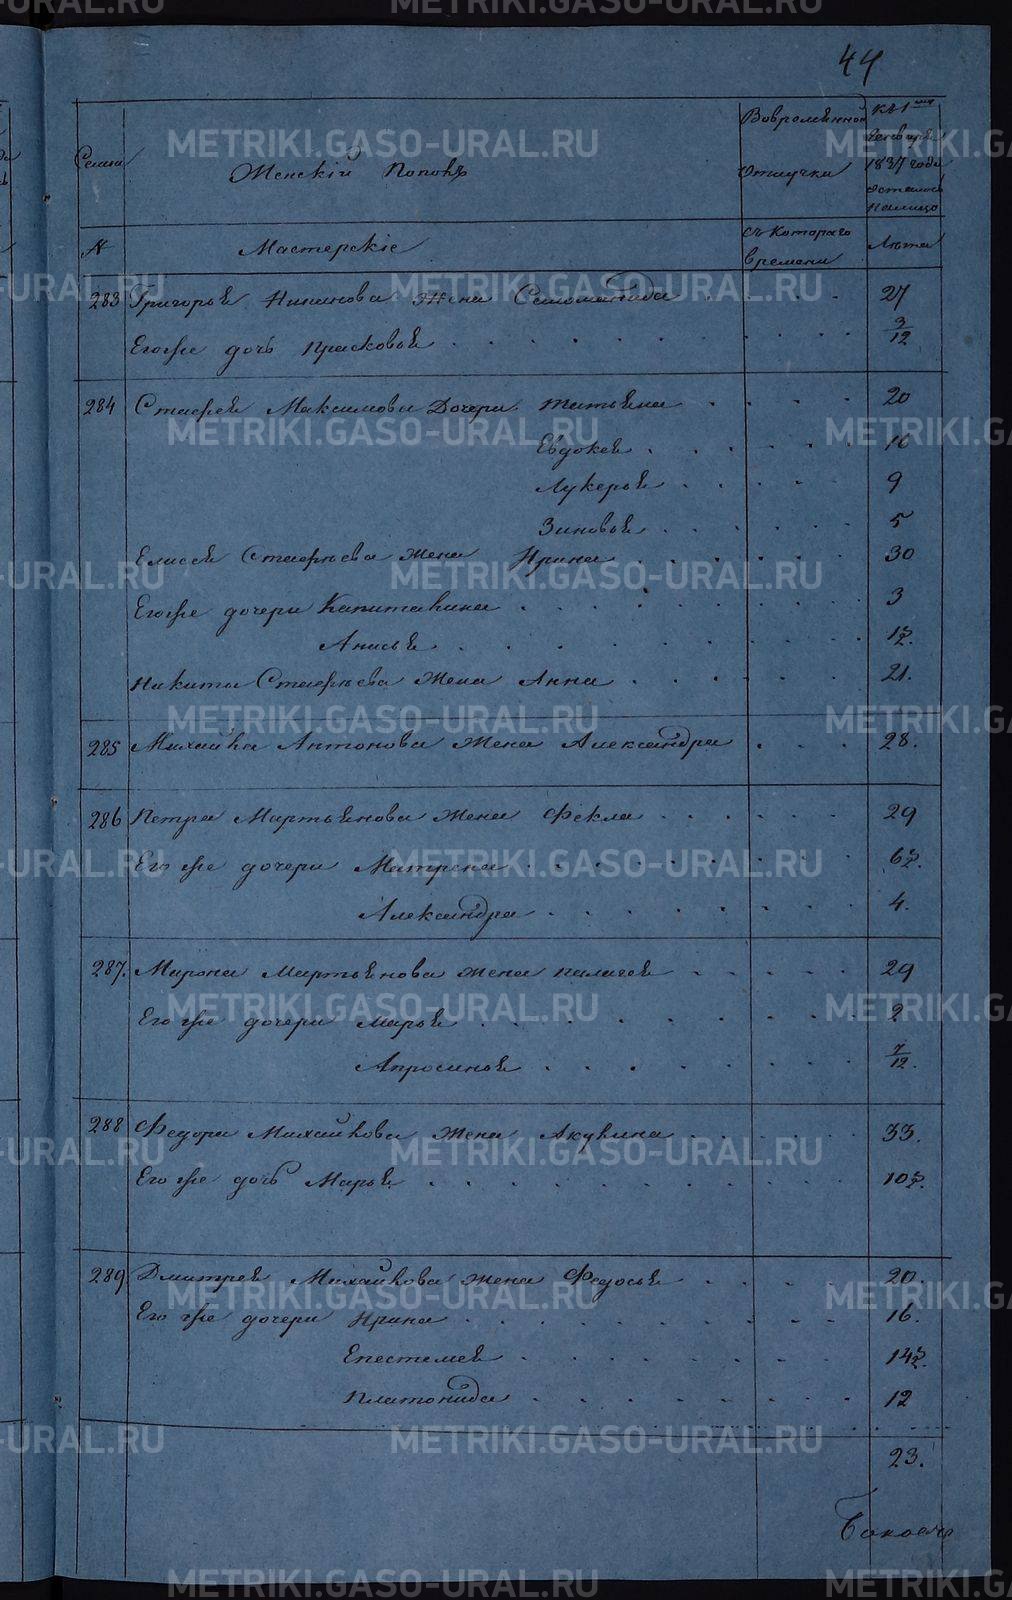 44
Семьи
Женскій Половъ
Вовременной отлучки
Къ 1му Генваря 1837 года осталось налицо
№
Мастерскіе
съ котораго времени
Лѣта
283 Григорья жена Саломанида 27
Егоже дочь Прасковья 3/12
284 Стафея Максимова дочери Татьяна 20
Евдокея 16
Лукерья 9
Зиновья 5
Елисея Стафѣева жена Ирина 30
Егоже дочери Капиталина 3
Анисья 1½.
Никиты Стафѣева жена Анна 21.
285 Михайла Антонова жена Александра 28.
286 Петра Мартьянова жена Фекла 29
Его же дочери Матрена 6½.
Александра 4.
287. Мирона Мартьянова жена Палагея 29
Его же дочери Марья 2
Апросинья 7/12.
288 Федора Михайлова жена Акулина 33.
Его же дочь Марья 10½.
289 Дмитрея Михайлова жена Федосья 20.
Его же дочери Ирина 16.
Епестемея 14½.
Платонида 12
23.
METRIKI.GASO-URAL.RU